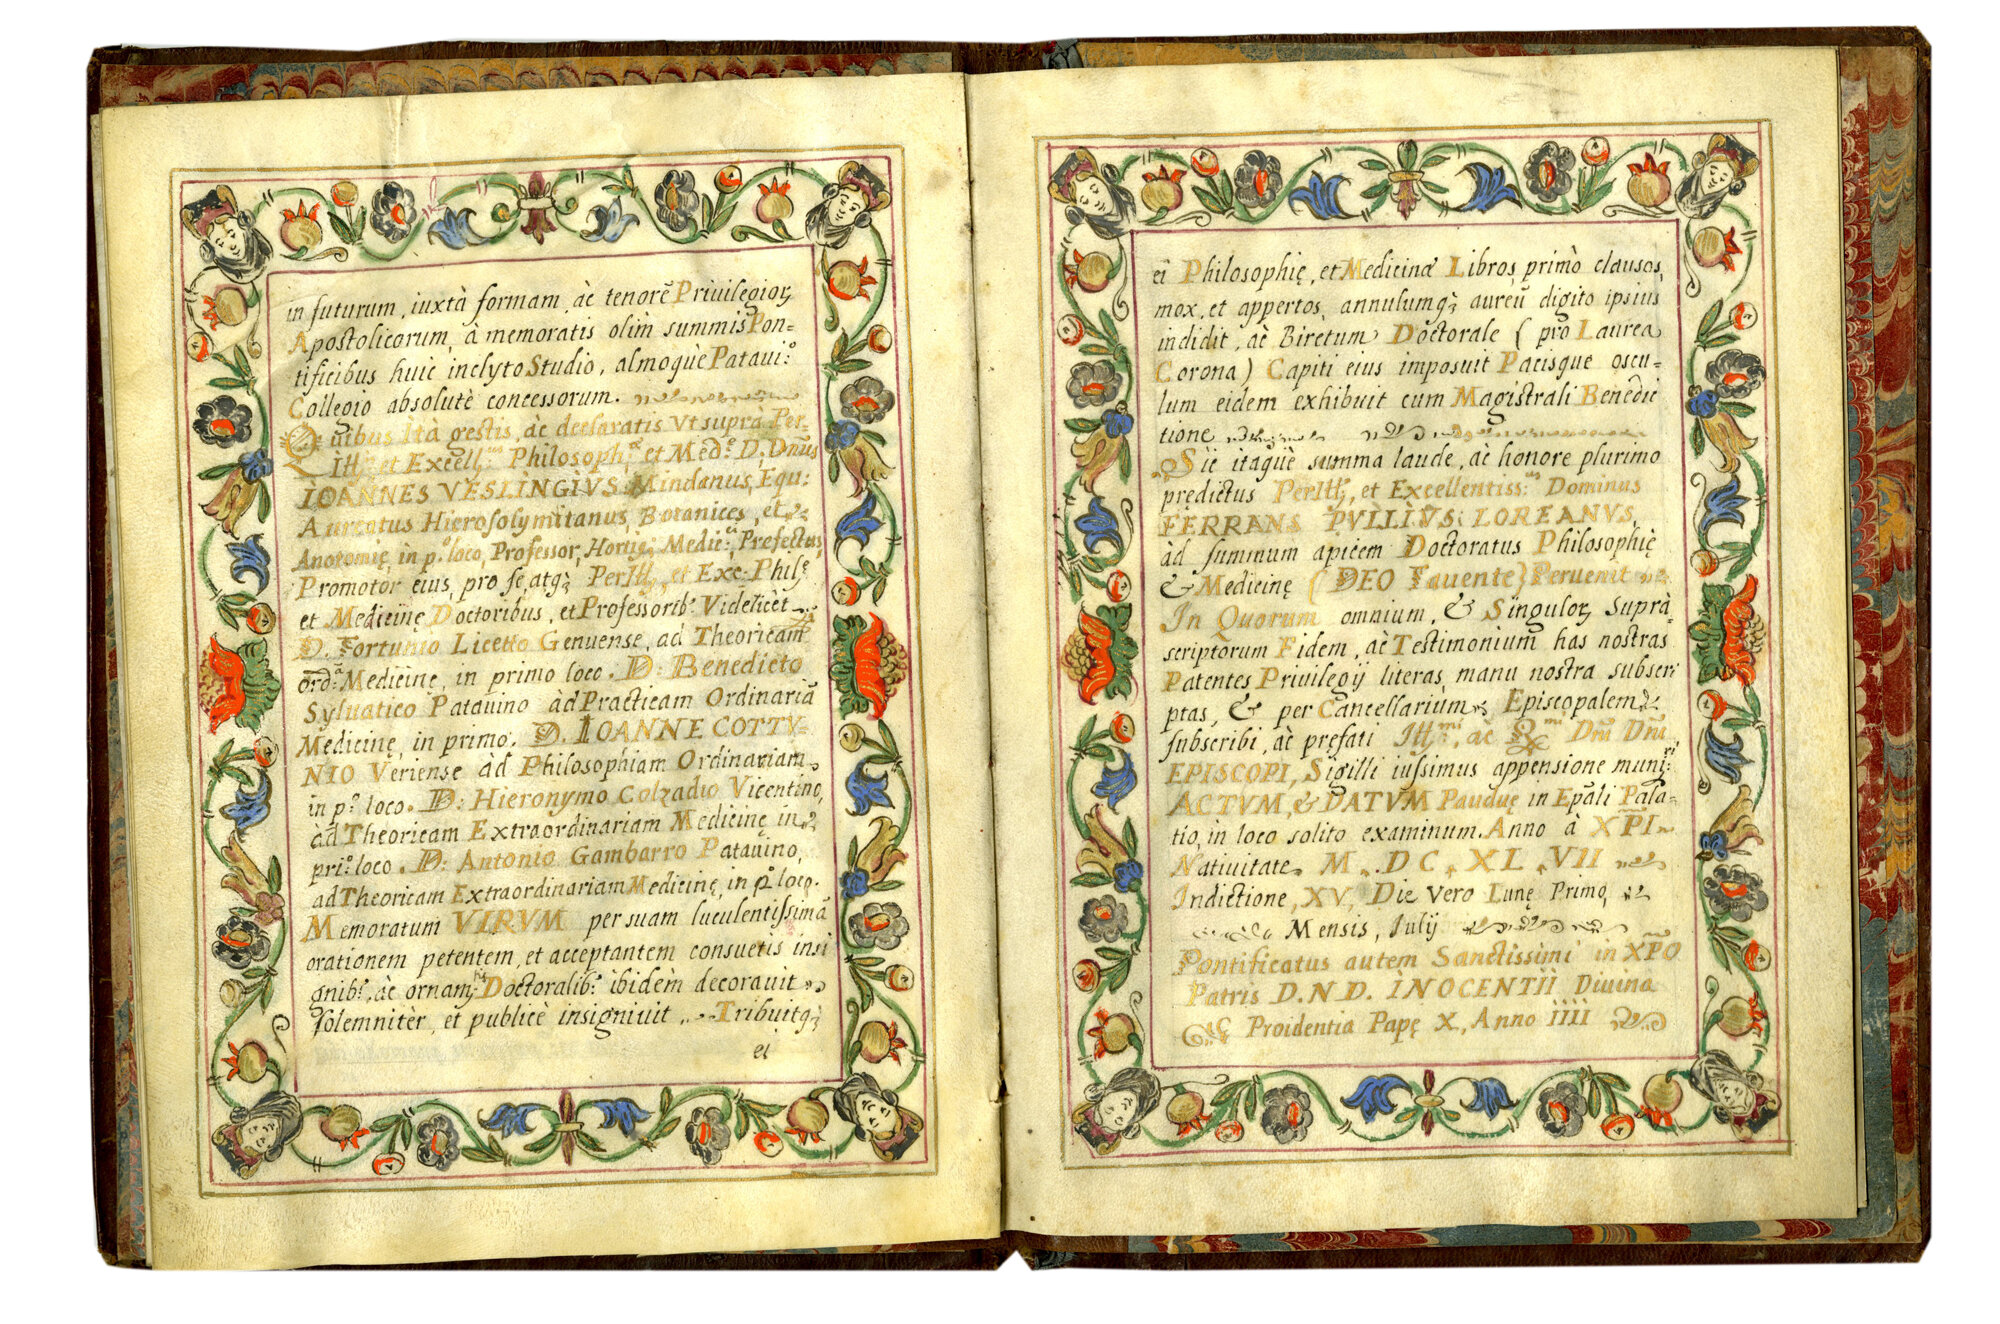 in futurum, iuxtà formam, àc tenorē Priuilegioꝝ
Apostolicorum, à memoratis olim summis Pon=
tificibus huic inclyto Studio, almoquè Pataui.º
Collegio absolutè concessorum.
Quibus Ità gestis, àc declaratis Vt suprà Per-
Ill.ᵉ et Excell.ᵘˢ Philosoph.ᵃ et Med.ᵒ D. Dnūs
IOANNES VESLINGIVS Mindanus, Equ:
Auratus Hierosolymitanus, Botanices, et
Anotomię, in p.º loco, Professor, Hortiq; Medic: Prefectus,
Promotor eius, pro se, atq; PerIll, et Exc: Phil.ᵉ
et Medicinę Doctoribus, et Professorib.ˢ Videlicèt
D. Fortunio Licetto Genuense, ad Theoricam
ord.ᵃ Medicinę, in primo loco. D: Benedicto
Syluatico Patauino àd Practicam Ordinariā
Medicinę, in primo. D. IOANNE COTTV-
NIO Veriense àd Philosophiam Ordinariam
in p.º loco. D: Hieronymo Colzadio Vicentino,
àd Theoricam Extraordinariam Medicinę, in
pri.º loco. D: Antonio Gambarro Patauino,
ad Theoricam Extraordinariam Medicinę, in p.º loco.
Memoratum VIRVM per suam luculentissimā
orationem petentem, et acceptantem consuetis insi
gnib.ˢ, àc ornam.ᵗⁱˢ Doctoralib.ˢ ìbidèm decorauit
solemnitèr, et publicè insigniuit Tribuitq;
ei
ei Philosophię, et Medicinæ Libros primò clausos,
mox, et appertos, annulumq; aureū digito ipsius
indidit, àc Biretum Doctorale (pro Laurea
Corona) Capiti eius imposuit Pacisque oscu-
lum eidem exhibuit cum Magistrali Benedic
tione
Sic itaque summa laude, àc honore plurimo
predictus PerIll, et Excellentiss:ᵘˢ Dominus
FERRANS PVLLIVS LOREANVS,
àd summum apicem Doctoratus Philosophię
& Medicinę (DEO Fauente) Peruenit
In Quorum omnium, & Singuloꝝ suprà-
scriptorum Fidem, àc Testimonium has nostras
Patentes Priuilegij literas, manu nostra subscri
ptas, & per Cancellarium Episcopalem
subscribi, àc pręfati Ill.ᵐⁱ, àc R.ᵐⁱ Dnī Dnī,
EPISCOPI, Sigilli iussimus appensione muniri:
ACTVM, & DATVM Paduę in Epāli Pala-
tio, in loco solito examinum. Anno à XPI
Natiuitate M. DC. XL. VII
Indictione, XV, Die vero Lunę Primo,
Mensis, Iulij
Pontificatus autem Sanctissimi in XPO
Patris D.N.D. INOCENTII Diuina
Proidentia Papę X, Anno IIII